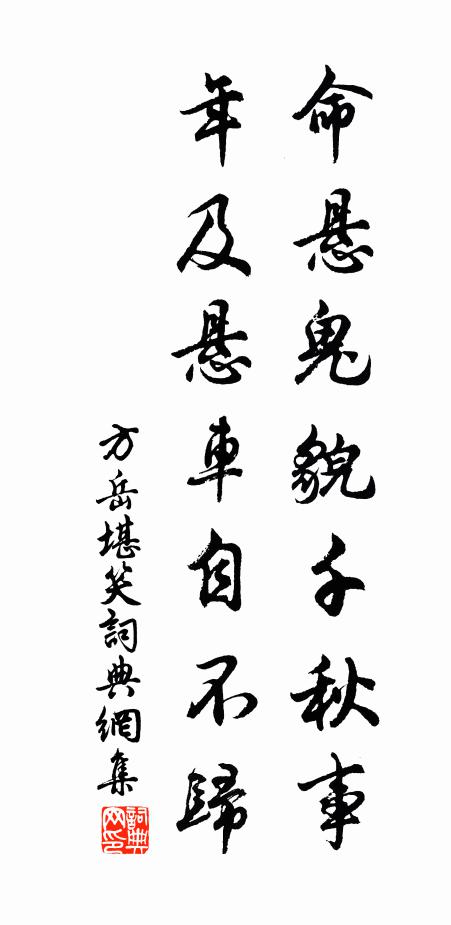 命悬鬼貌千秋事
年及悬車自不歸
方岳堪笑詞典網集
詞典网印